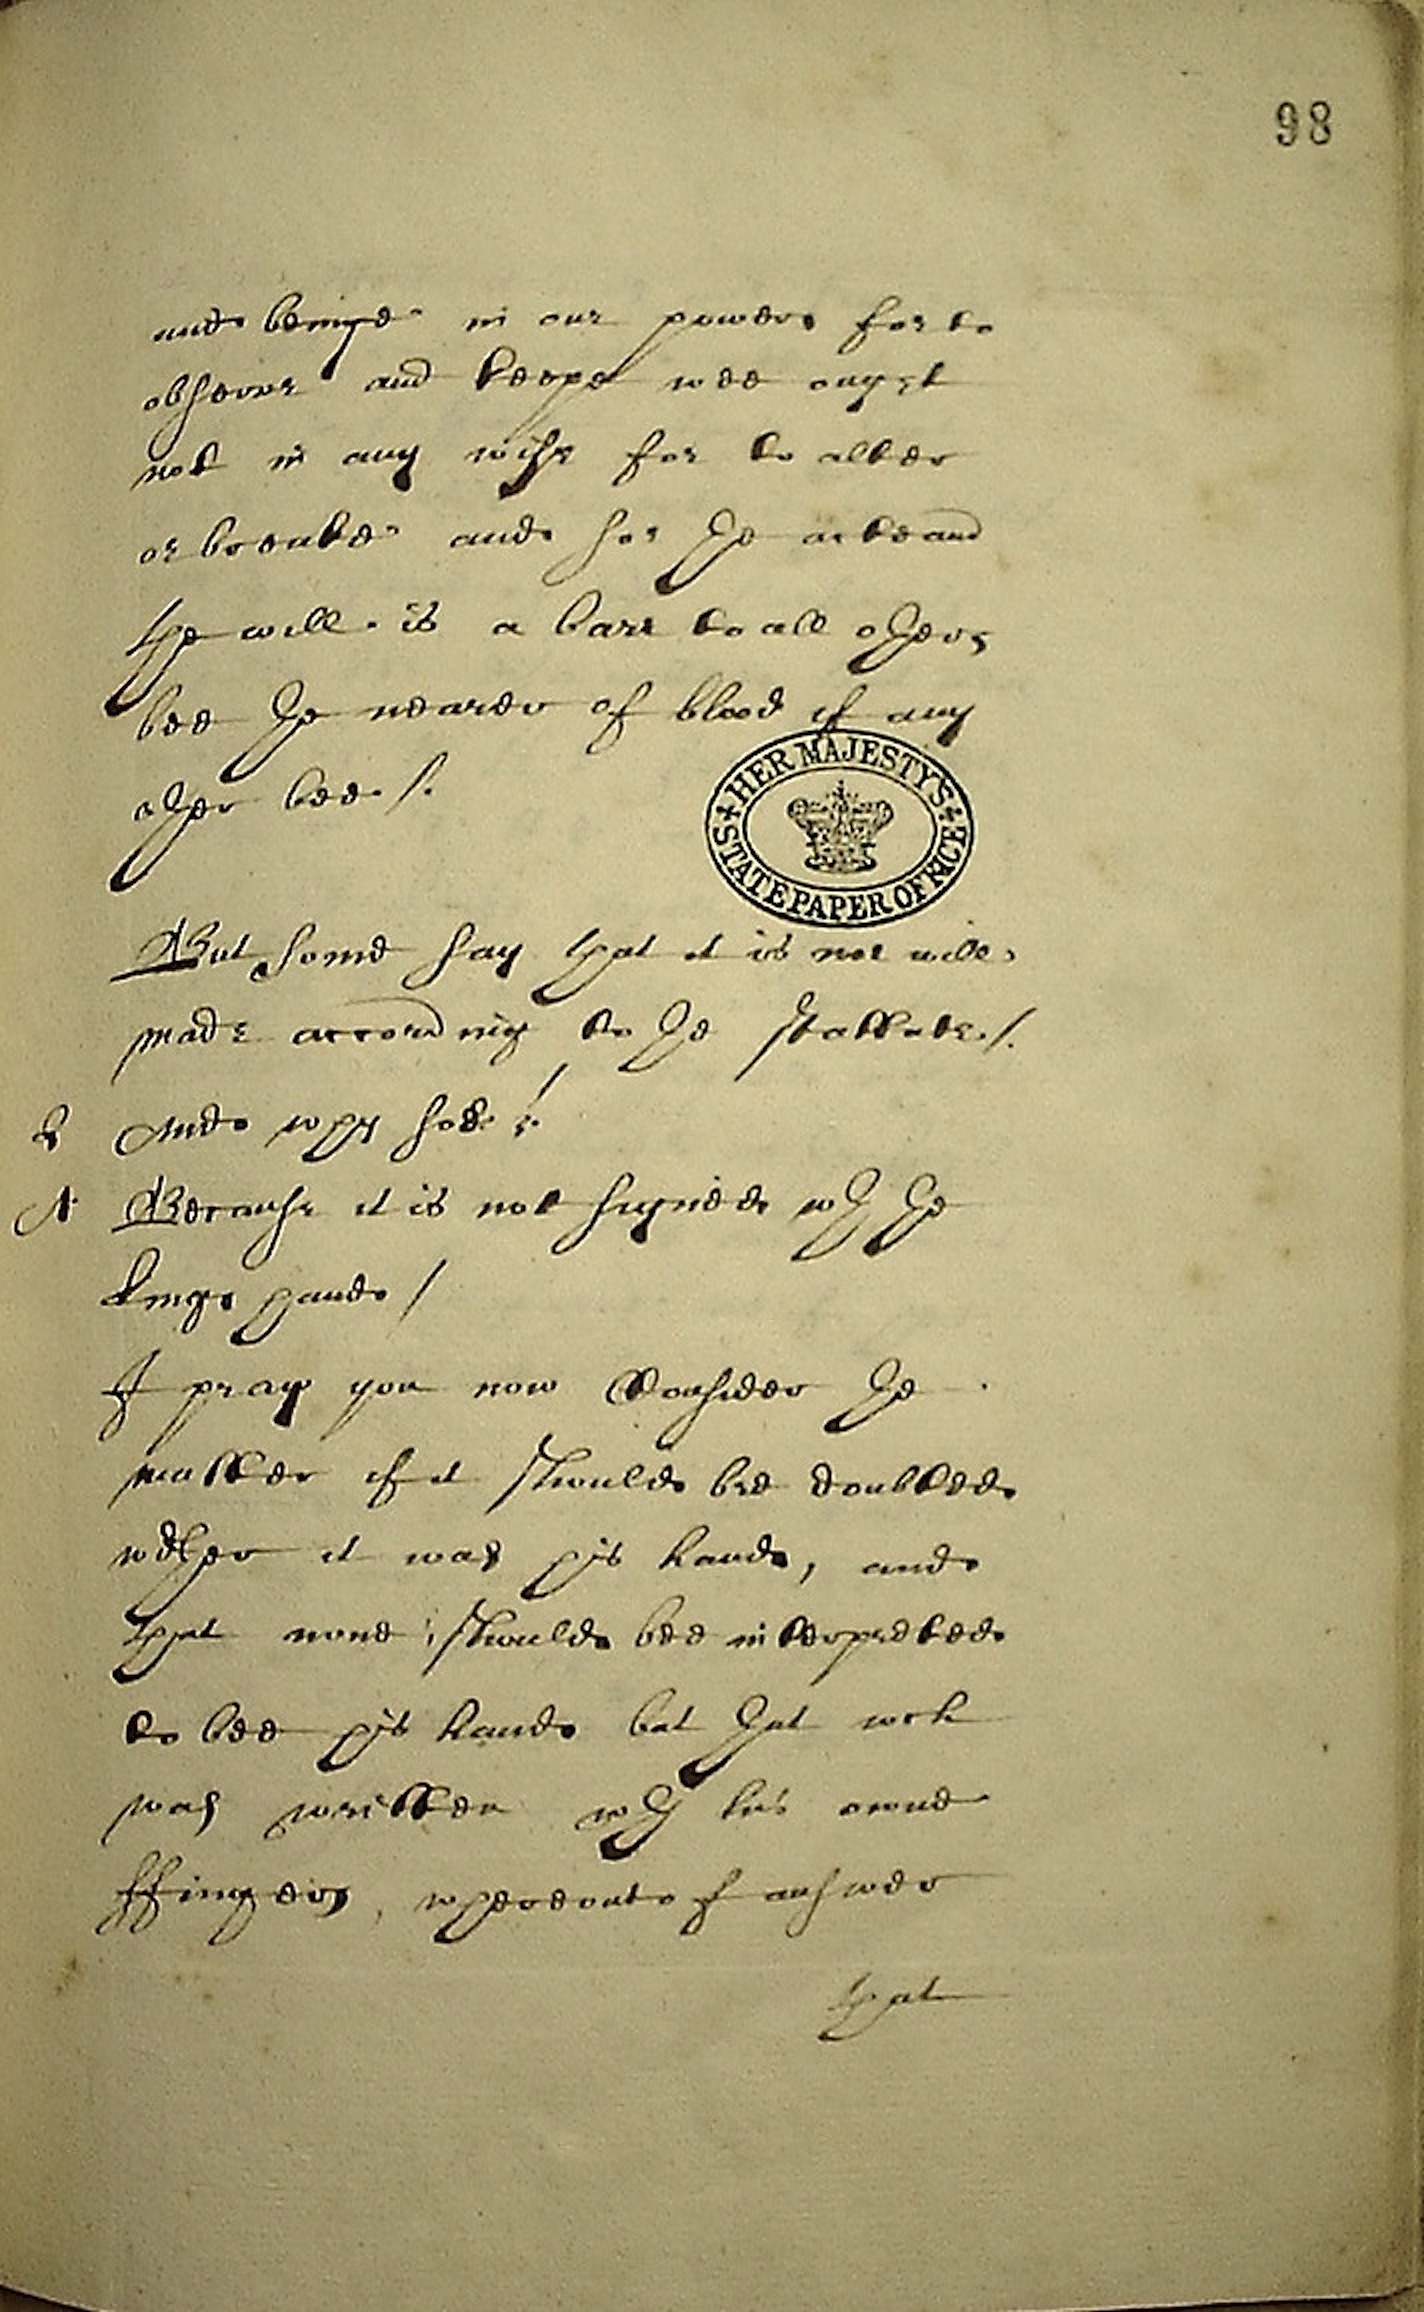 98
and beinge in our powers for to
observe and keepe wee ought
not in any wise for to alter
or breake and so the acte and
the will is a barr to all others
bee the nearer of blood if any
other bee /.
HER MAJESTY'S STATE PAPER OFFICE
But some say that it is not will
made according to the stattute /.
Q And why soe ?
A Because it is not signed wth the
kings hand /
I pray you now Consider the
matter if it should bee doubted
wether it was his hand, and
that none should bee interpreted
to bee his hand but that wch
was written wth his owne
ffingers, whereunto I answer
that